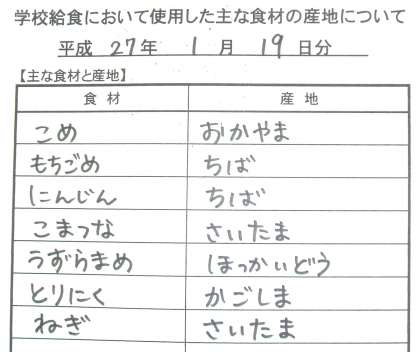 学校給食において使用した主な食材の産地について
平成 27年 1月 19日分
【主な食材と産地】
食材 産地
こめ おかやま
もちごめ ちば
にんじん ちば
こまつな さいたま
うずらまめ ほっかいどう
とりにく かごしま
ねぎ さいたま